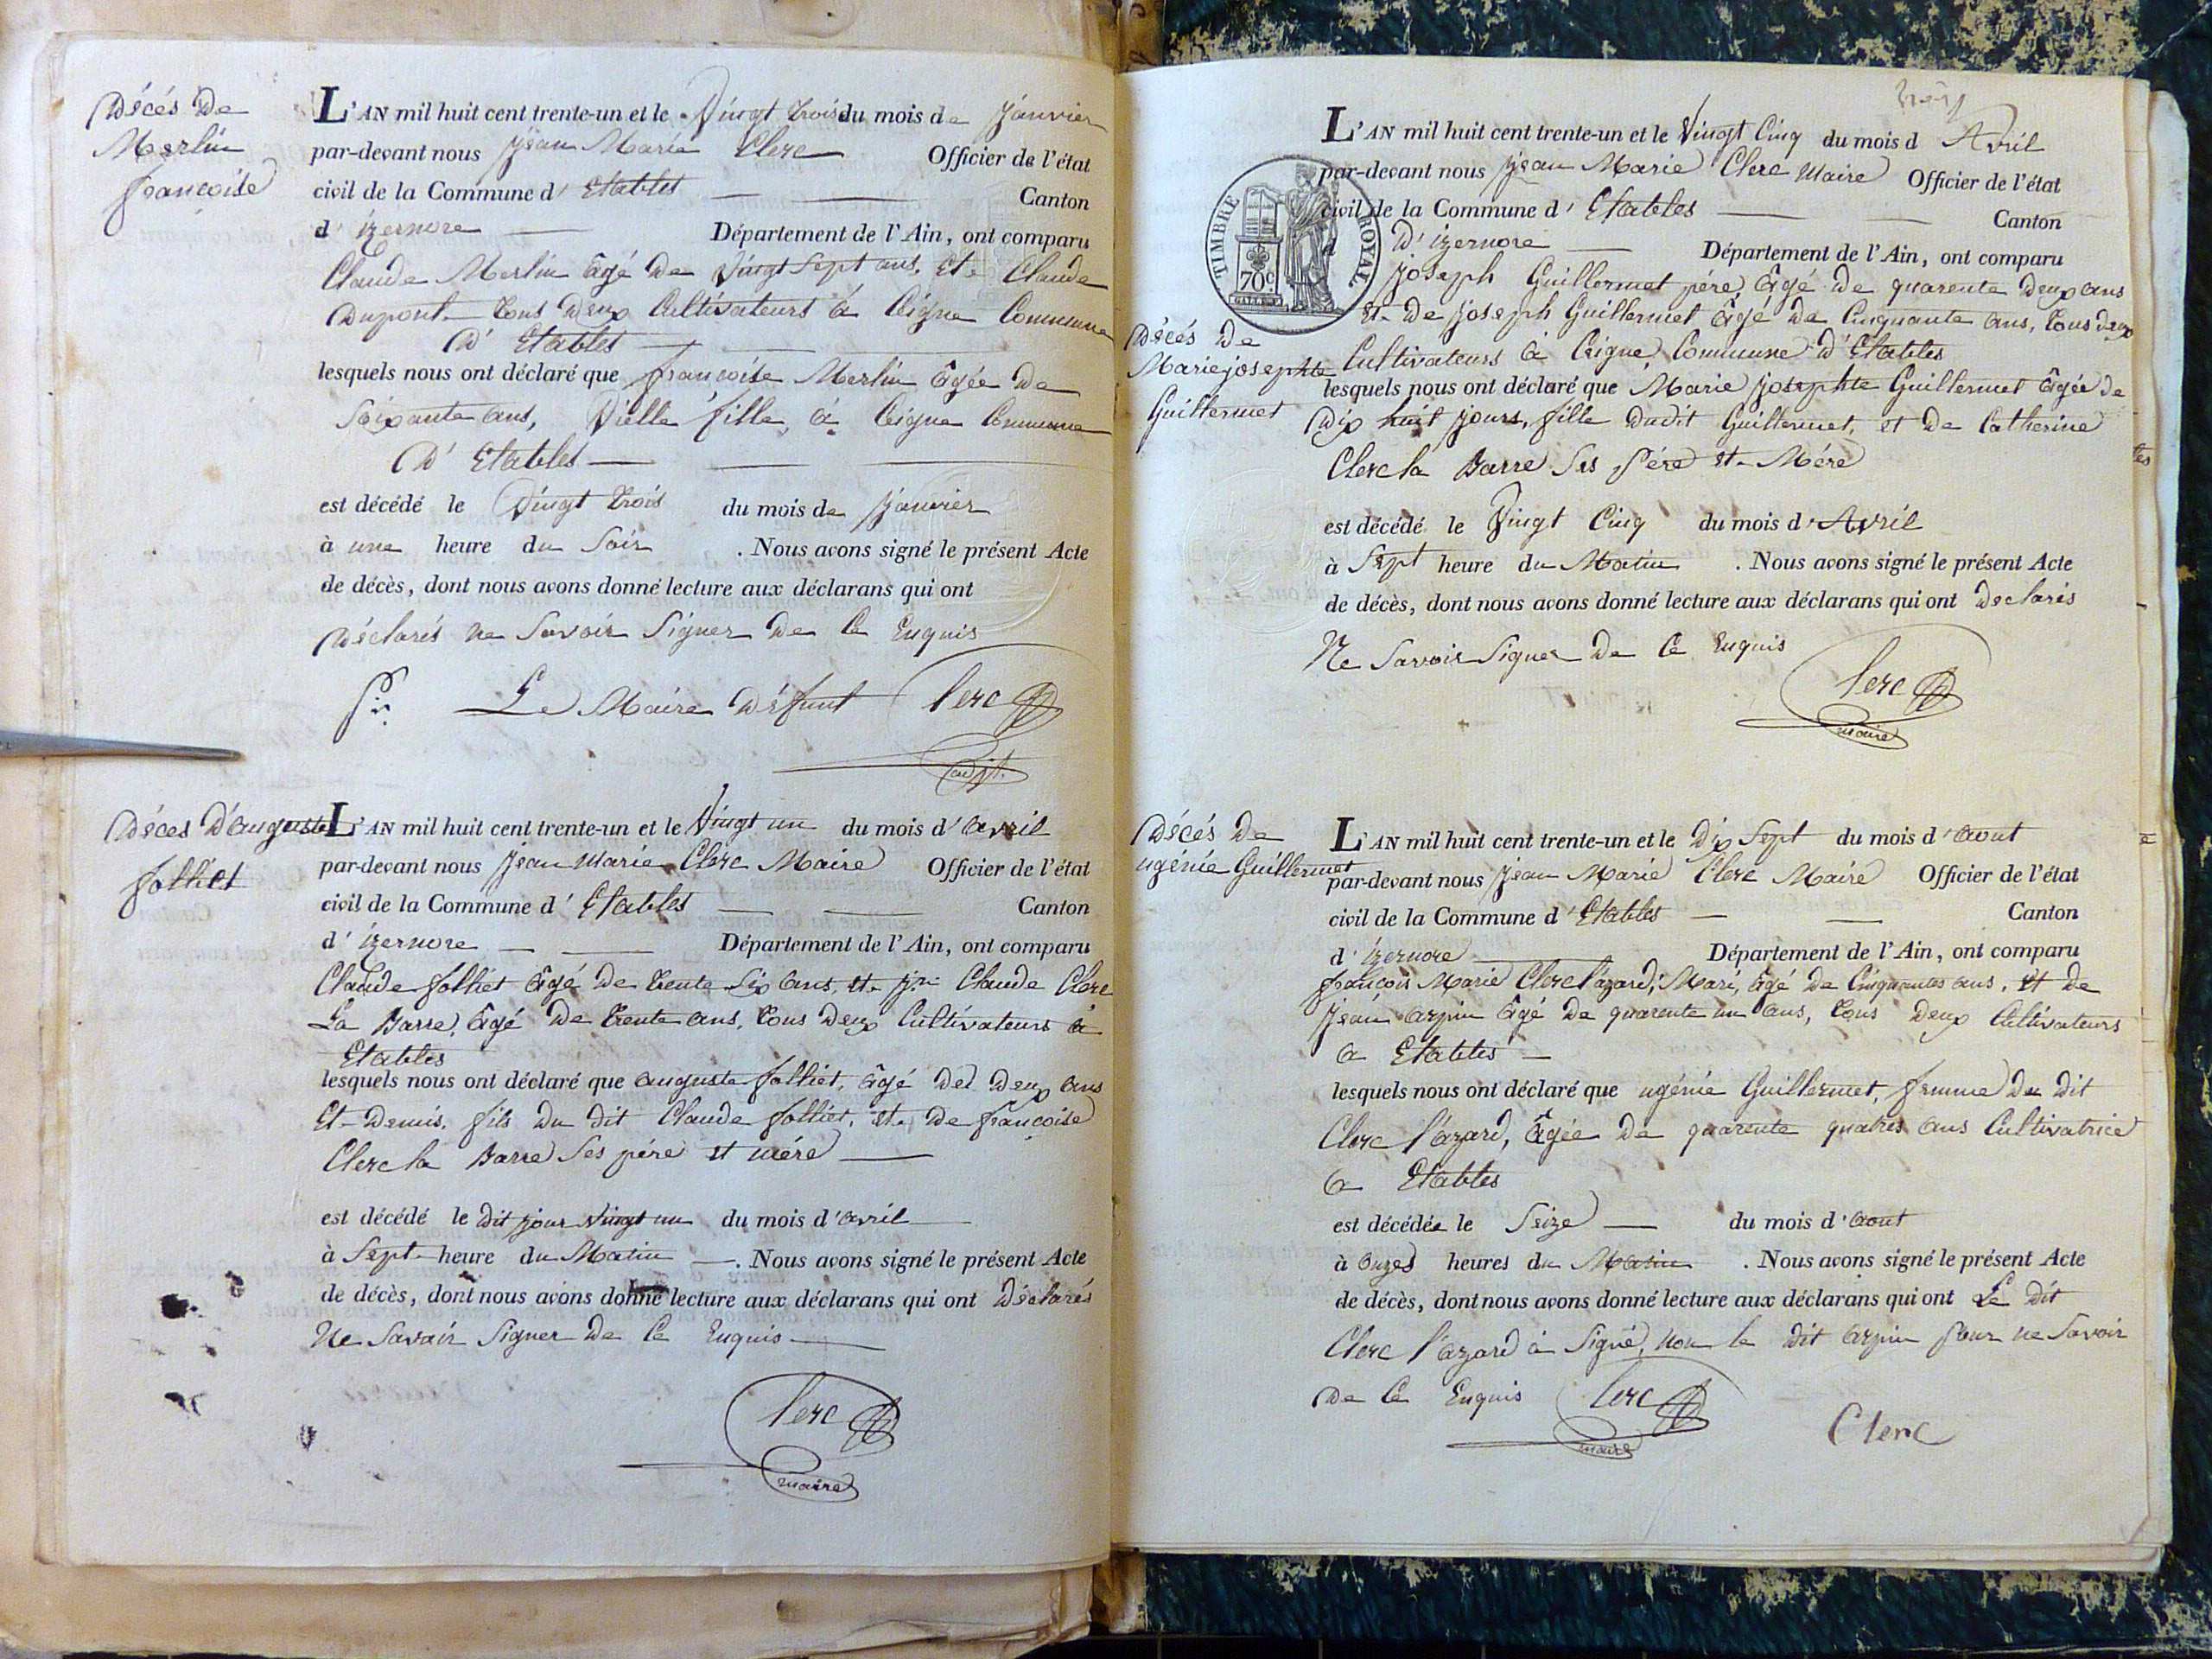 Décés De
Merlin
françoise
L'AN mil huit cent trente-un et le Vingt trois du mois de janvier
par-devant nous jean Marie Clerc Officier de l'état
civil de la Commune d' Etables Canton
d' izernore Département de l'Ain, ont comparu
Claude Merlin âgé De Vingt Sept ans, Et Claude
Dupont tous Deux Cultivateurs à Ceigne Commune
D' Etables
lesquels nous ont déclaré que françoise Merlin âgée De
Soixante ans, Vielle fille, à Ceigne Commune
D' Etables
est décédé le Vingt trois du mois de janvier
à une heure du Soir . Nous avons signé le présent Acte
de décès, dont nous avons donné lecture aux déclarans qui ont
Déclarés ne Savoir Signer De Ce Enquis
Le Maire Défunt Clerc
adjt.
Déces D'auguste
folliet
L'AN mil huit cent trente-un et le Vingt un du mois d' avril
par-devant nous jean Marie Clerc Maire Officier de l'état
civil de la Commune d' Etables Canton
d' izernore Département de l'Ain, ont comparu
Claude folliet âgé De trente Six ans, et jn Claude Clerc
La Barre, âgé De trente ans, tous Deux Cultivateurs à
Etables
lesquels nous ont déclaré que auguste folliet, âgé De Deux ans
Et Demis, fils Du Dit Claude folliet, et De françoise
Clerc la Barre Ses père et mère
est décédé le Dit jour Vingt un du mois d' avril
à Sept heure du Matin . Nous avons signé le présent Acte
de décès, dont nous avons donné lecture aux déclarans qui ont Déclarés
Ne Savoir Signer De Ce Enquis
Clerc
maire
L'AN mil huit cent trente-un et le Vingt Cinq du mois d Avril
par-devant nous jean Marie Clerc Maire Officier de l'état
civil de la Commune d' Etables Canton
d D' izernore Département de l'Ain, ont comparu
TIMBRE ROYAL
70c
joseph Guillermet père, âgé De quarente Deux ans
Et De joseph Guillermet âgé De Cinquante ans, tous Deux
Cultivateurs à Ceigne Commune D'Etables
Décés De
Marie josephte
Guillermet
lesquels nous ont déclaré que Marie josephte Guillermet âgée De
Dix huit jours, fille Dudit Guillermet, et De Catherine
Clerc la Barre Ses Père et Mère
est décédé le Vingt Cinq du mois d' Avril
à Sept heure du Matin . Nous avons signé le présent Acte
de décès, dont nous avons donné lecture aux déclarans qui ont Declarés
Ne Savoir Signer De Ce Enquis
Clerc
maire
Décés De
ugénie Guillermet
L'AN mil huit cent trente-un et le Dix Sept du mois d' aout
par-devant nous jean Marie Clerc Maire Officier de l'état
civil de la Commune d' Etables Canton
d' izernore Département de l'Ain, ont comparu
françois Marie Clerc l'azard, Mari, âgé De Cinquantes ans, Et De
jean arpin âgé De quarente un ans, tous Deux Cultivateurs
a Etables
lesquels nous ont déclaré que ugénie Guillermet, femme Du Dit
Clerc l'azard, âgée De quarente quatres ans Cultivatrice
a Etables
est décédée le Seize du mois d' aout
à onzes heures du Matin . Nous avons signé le présent Acte
de décès, dont nous avons donné lecture aux déclarans qui ont Le Dit
Clerc l'azard à Signé, non le Dit arpin pour ne Savoir
De Ce Enquis Clerc
maire
Clerc